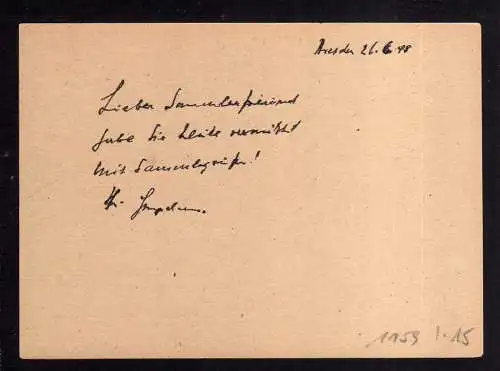 Dresden 26.6.48
Lieber Sammlerfreund
habe Sie heute vermißt
Mit Sammlergrüßen!
Ihr
1959 1.15